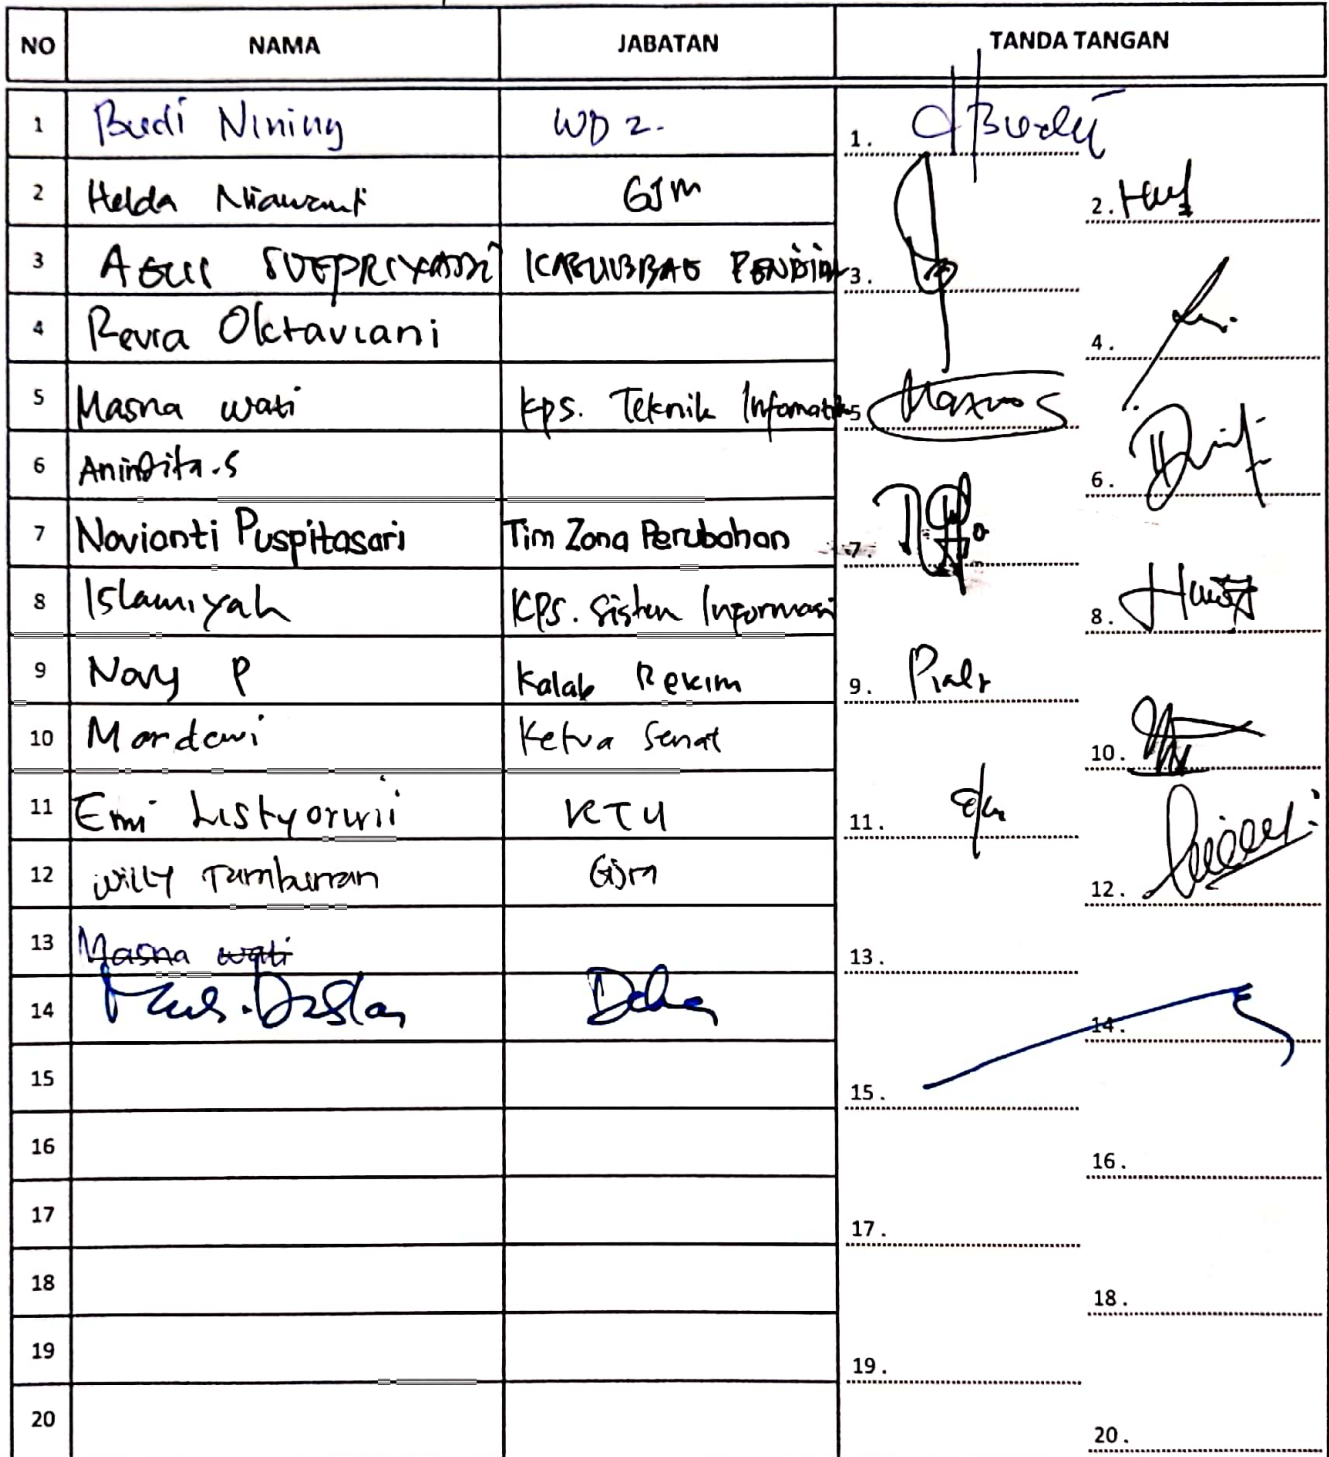 NO NAMA JABATAN TANDA TANGAN
1 Budi Nining WD 2. 1.
2 Helda Niawanti GJM 2.
3 AGUS SOEPRIYADI KASUBBAG PENDIDI 3.
4 Revia Oktaviani 4.
5 Masna wati Kps. Teknik Infomatika 5
6 Anindita.S 6.
7 Novianti Puspitasari Tim Zona Perubahan 7.
8 Islamiyah KPS. Sistem Informasi 8.
9 Novy P Kalab Rekim 9.
10 Mardewi Ketua Senat 10.
11 Emi Listyorini KTU 11.
12 Willy Tambunan GJM 12.
13 Masna wati 13.
14 Muh. Dahlan 14.
15 15.
16 16.
17 17.
18 18.
19 19.
20 20.